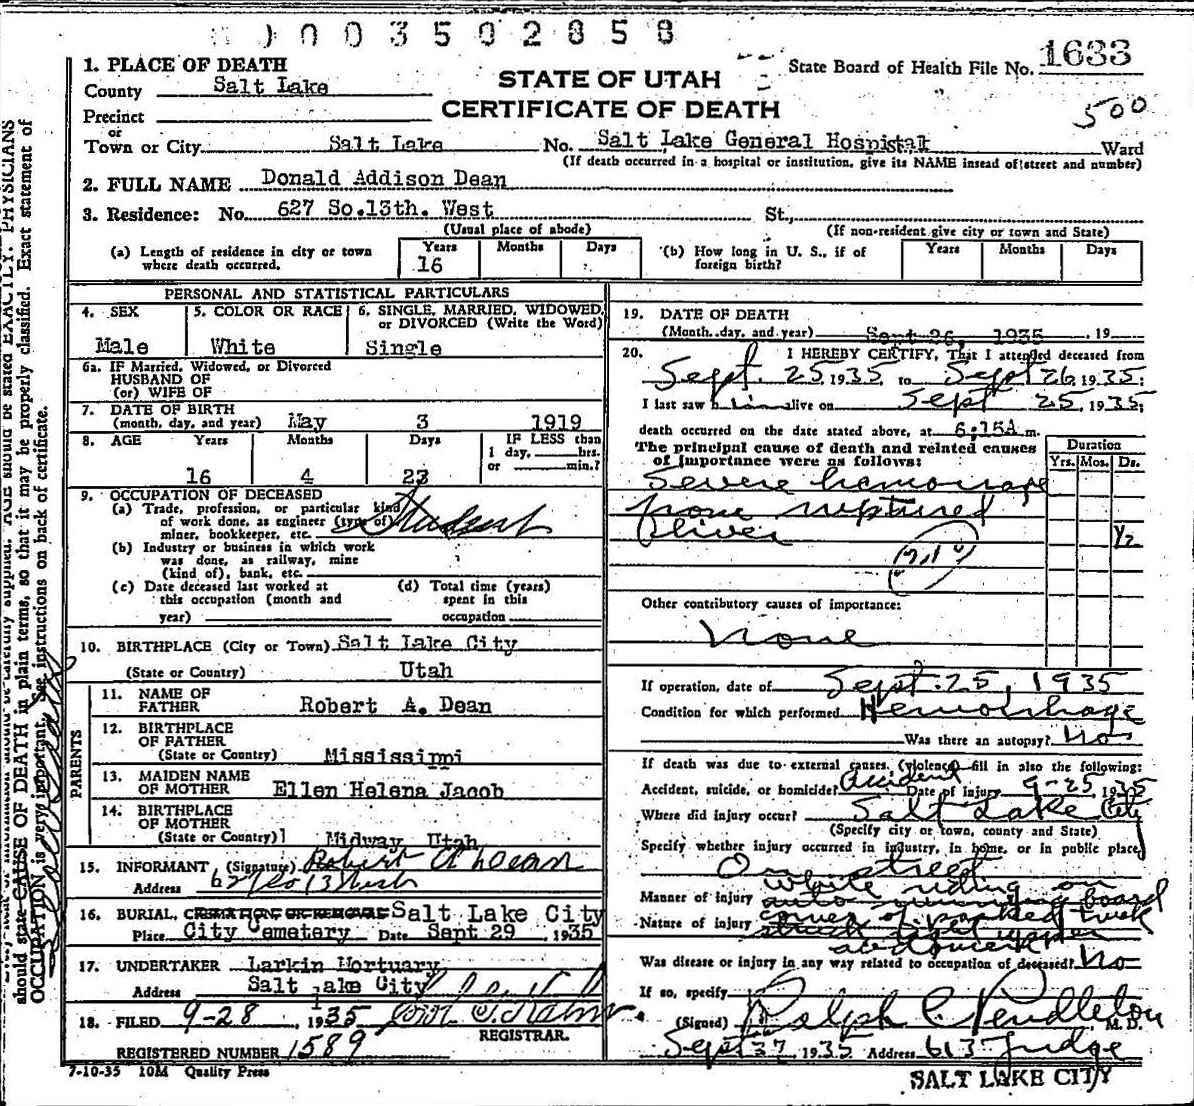 0003502858
1633
1. PLACE OF DEATH
STATE OF UTAH
State Board of Health File No. 1633
County Salt Lake
CERTIFICATE OF DEATH
500
Precinct
or
Town or City Salt Lake No. Salt Lake General Hospistal Ward
(If death occurred in a hospital or institution, give its NAME insead of street and number)
2. FULL NAME Donald Addison Dean
3. Residence: No. 627 So.13th. West St.,
(Usual place of abode) (If non-resident give city or town and State)
(a) Length of residence in city or town where death occurred. Years 16 Months Days
(b) How long in U. S., if of foreign birth? Years Months Days
PERSONAL AND STATISTICAL PARTICULARS
4. SEX 5. COLOR OR RACE 6. SINGLE, MARRIED, WIDOWED, or DIVORCED (Write the Word)
Male White Single
6a. IF Married, Widowed, or Divorced
HUSBAND OF
(or) WIFE OF
7. DATE OF BIRTH
(month, day, and year) May 3 1919
8. AGE Years Months Days IF LESS than
1 day, hrs.
or min.?
16 4 23
9. OCCUPATION OF DECEASED
(a) Trade, profession, or particular kind
of work done, as engineer (type of)
miner, bookkeeper, etc. Student
(b) Industry or business in which work
was done, as railway, mine
(kind of), bank, etc.
(c) Date deceased last worked at
this occupation (month and
year)
(d) Total time (years)
spent in this
occupation
10. BIRTHPLACE (City or Town) Salt Lake City
(State or Country) Utah
PARENTS
11. NAME OF
FATHER Robert A. Dean
12. BIRTHPLACE
OF FATHER
(State or Country) Mississippi
13. MAIDEN NAME
OF MOTHER Ellen Helena Jacob
14. BIRTHPLACE
OF MOTHER
(State or Country)] Midway Utah
15. INFORMANT (Signature) Robert A Dean
Address 627 So 13 West
16. BURIAL, CREMATION OR REMOVAL Salt Lake City
Place City Cemetery Date Sept 29 , 1935
17. UNDERTAKER Larkin Mortuary
Address Salt Lake City
18. FILED 9-28 , 1935
REGISTRAR.
REGISTERED NUMBER 1589
7-10-35 10M Quality Press
19. DATE OF DEATH
(Month, day, and year) Sept 26, 1935 , 19
20. I HEREBY CERTIFY, That I attended deceased from
Sept. 25, 1935 to Sept 26, 1935;
I last saw him alive on Sept 25, 1935;
death occurred on the date stated above, at 6;15A m.
The principal cause of death and related causes
of importance were as follows:
Duration
Yrs. Mos. Ds.
Severe hemorrage
from ruptured
liver 1/2
Other contributory causes of importance:
None
If operation, date of Sept. 25, 1935
Condition for which performed Hemorrhage
Was there an autopsy? No
If death was due to external causes, (violence) fill in also the following:
Accident, suicide, or homicide? Accident Date of injury 9-25, 1935
Where did injury occur? Salt Lake City
(Specify city or town, county and State)
Specify whether injury occurred in industry, in home, or in public place,
On street
Manner of injury while riding on
auto running board
Nature of injury corner of parked truck
struck right upper
abdomen
Was disease or injury in any way related to occupation of deceased? No
If so, specify
(Signed) Ralph C. Pendleton, M. D.
Sept 27, 1935 Address 613 Judge
SALT LAKE CITY
should state CAUSE OF DEATH in plain terms, so that it may be properly classified. Exact statement of
OCCUPATION is very important. See instructions on back of certificate.